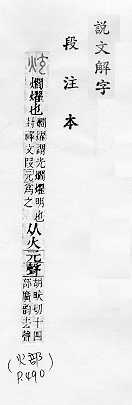 說文解字
段注本
炫
爓燿也
爓燿謂光爓燿明也
封禪文叚元爲之
从火元聲
胡畎切十四
部廣韵去聲
(火部)
P.490